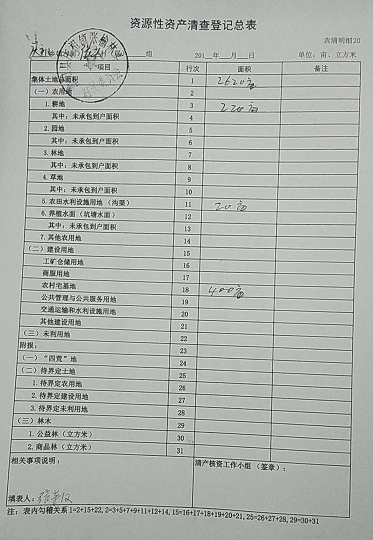 资源性资产清查登记总表
农清明细20
组 201 年 月 日 单位：亩、立方米
项目 行次 面积 备注
集体土地总面积 1 2620亩
（一）农用地 2
1. 耕地 3 220亩
其中：未承包到户面积 4
2. 园地 5
其中：未承包到户面积 6
3. 林地 7
其中：未承包到户面积 8
4. 草地 9
其中：未承包到户面积 10
5. 农田水利设施用地（沟渠） 11 20亩
6. 养殖水面（坑塘水面） 12
其中：未承包到户面积 13
7. 其他农用地 14
（二）建设用地 15
工矿仓储用地 16
商服用地 17
农村宅基地 18 400亩
公共管理与公共服务用地 19
交通运输和水利设施用地 20
其他建设用地 21
（三）未利用地 22
附报： 23
（一）“四荒”地 24
（二）待界定土地 25
1. 待界定农用地 26
2. 待界定建设用地 27
3. 待界定未利用地 28
（三）林木 29
1. 公益林（立方米） 30
2. 商品林（立方米） 31
相关事项说明： 清产核资工作小组（签章）：
填表人：
注：表内勾稽关系1=2+15+22, 2=3+5+7+9+11+12+14, 15=16+17+18+19+20+21, 25=26+27+28, 29=30+31